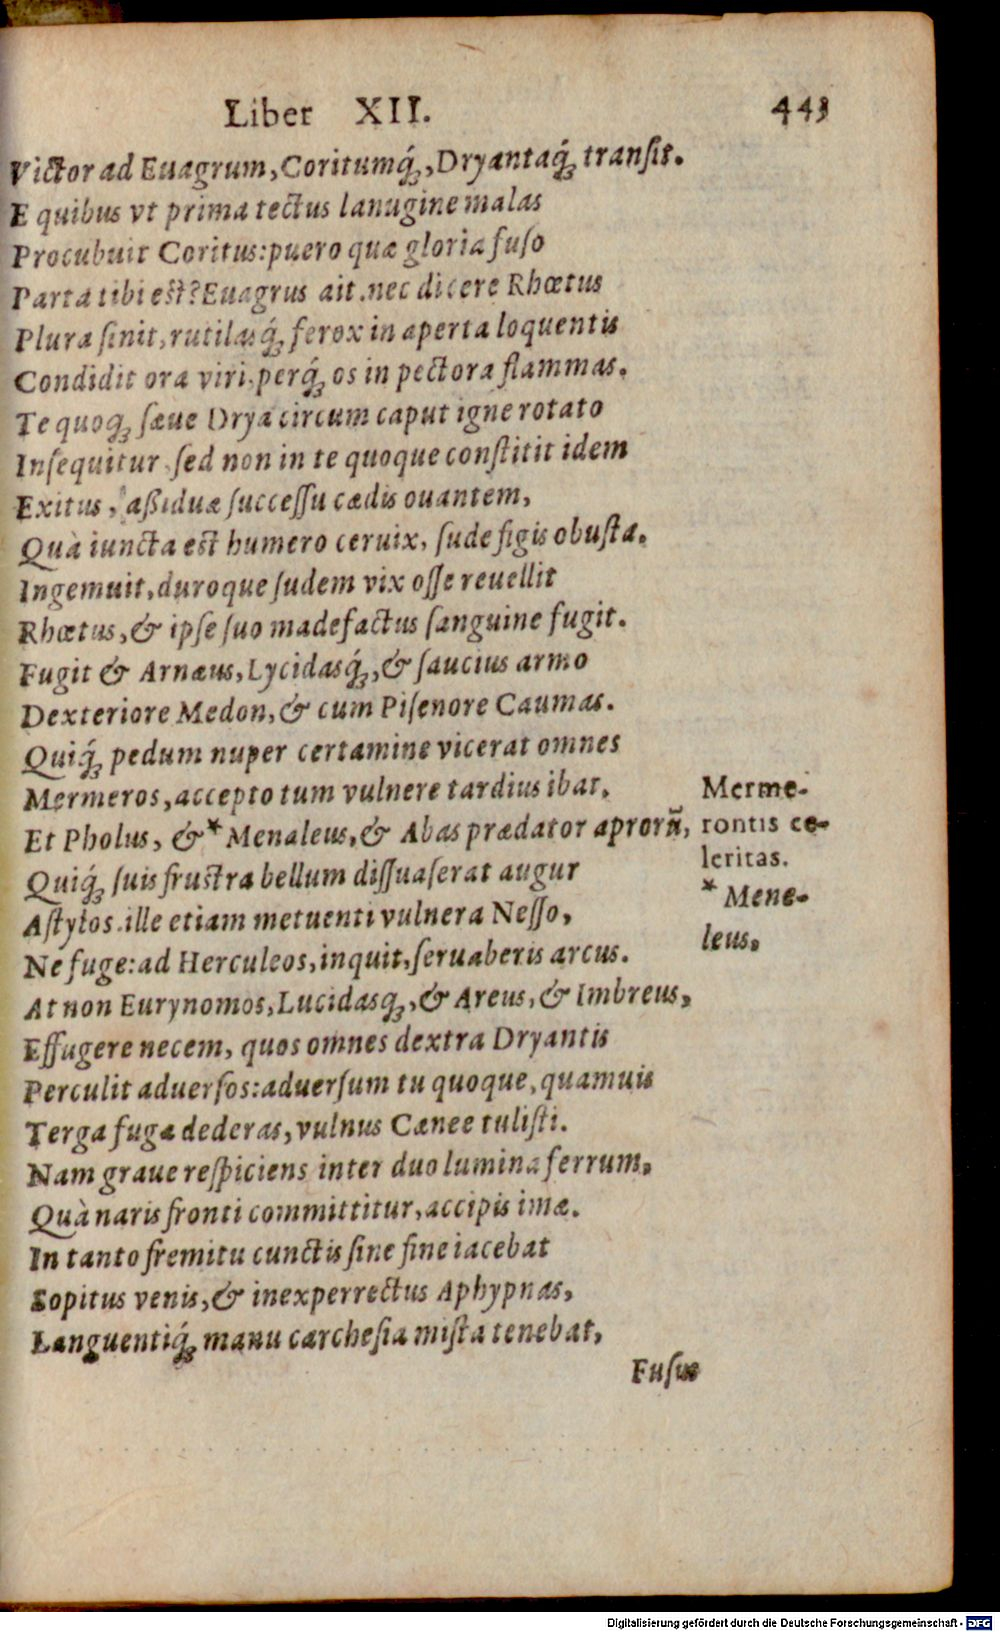 Liber XII. 443
Victor ad Euagrum, Coritumq́ꝫ, Dryantaq́ꝫ transit.
E quibus vt prima tectus lanugine malas
Procubuit Coritus: puero quæ gloria fuſo
Parta tibi est? Euagrus ait. nec dicere Rhœtus
Plura ſinit, rutilasq́ꝫ ferox in aperta loquentis
Condidit ora viri, perq́ꝫ os in pectora flammas.
Te quoqꝫ ſæue Drya circum caput igne rotato
Inſequitur, ſed non in te quoque conſtitit idem
Exitus, aßiduæ ſucceſſu cædis ouantem,
Quà iuncta est humero ceruix, ſude figis obuſta.
Ingemuit, duroque ſudem vix oſſe reuellit
Rhœtus, & ipſe ſuo madefactus ſanguine fugit.
Fugit & Arnæus, Lycidasq́ꝫ, & ſaucius armo
Dexteriore Medon, & cum Piſenore Caumas.
Quiq́ꝫ pedum nuper certamine vicerat omnes
Mermeros, accepto tum vulnere tardius ibat.
Et Pholus, & * Menaleus, & Abas prædator aprorũ,
Quiq́ꝫ ſuis frustra bellum diſſuaſerat augur
Aſtylos. ille etiam metuenti vulnera Neſſo,
Ne fuge: ad Herculeos, inquit, ſeruaberis arcus.
At non Eurynomos, Lucidasqꝫ, & Areus, & Imbreus,
Effugere necem, quos omnes dextra Dryantis
Perculit aduerſos: aduerſum tu quoque, quamuis
Terga fuga dederas, vulnus Cænee tuliſti.
Nam graue reſpiciens inter duo lumina ferrum,
Quà naris fronti committitur, accipis imæ.
In tanto fremitu cunctis ſine fine iacebat
Sopitus venis, & inexperrectus Aphypnas,
Languentiq́ꝫ manu carcheſia miſta tenebat,
Fuſus
Merme-
rontis ce-
leritas.
* Mene-
leus,
Digitalisierung gefördert durch die Deutsche Forschungsgemeinschaft - DFG